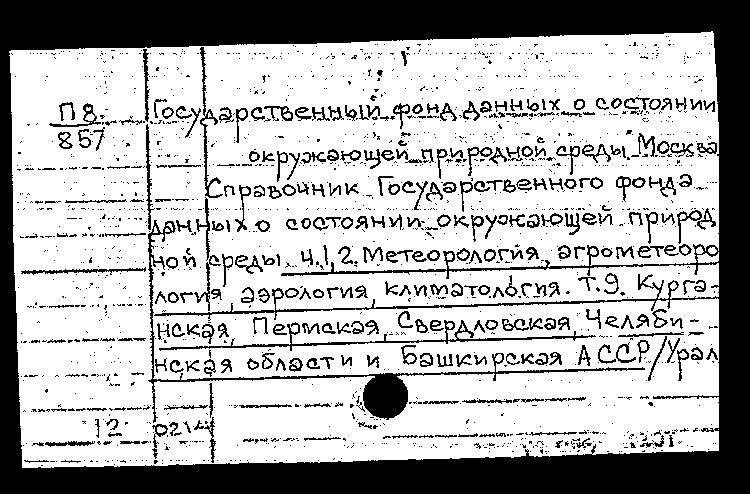 П8 Государственный фонд данных о состоянии
857
окружающей природной среды Москва
Справочник Государственного фонда
данных о состоянии окружающей природ
ной среды. Ч.1,2. Метеорология, агрометеоро
логия, аэрология, климатология. Т.9. Курга-
нская, Пермская, Свердловская, Челяби-
нская области и Башкирская АССР/Урал
12 0214